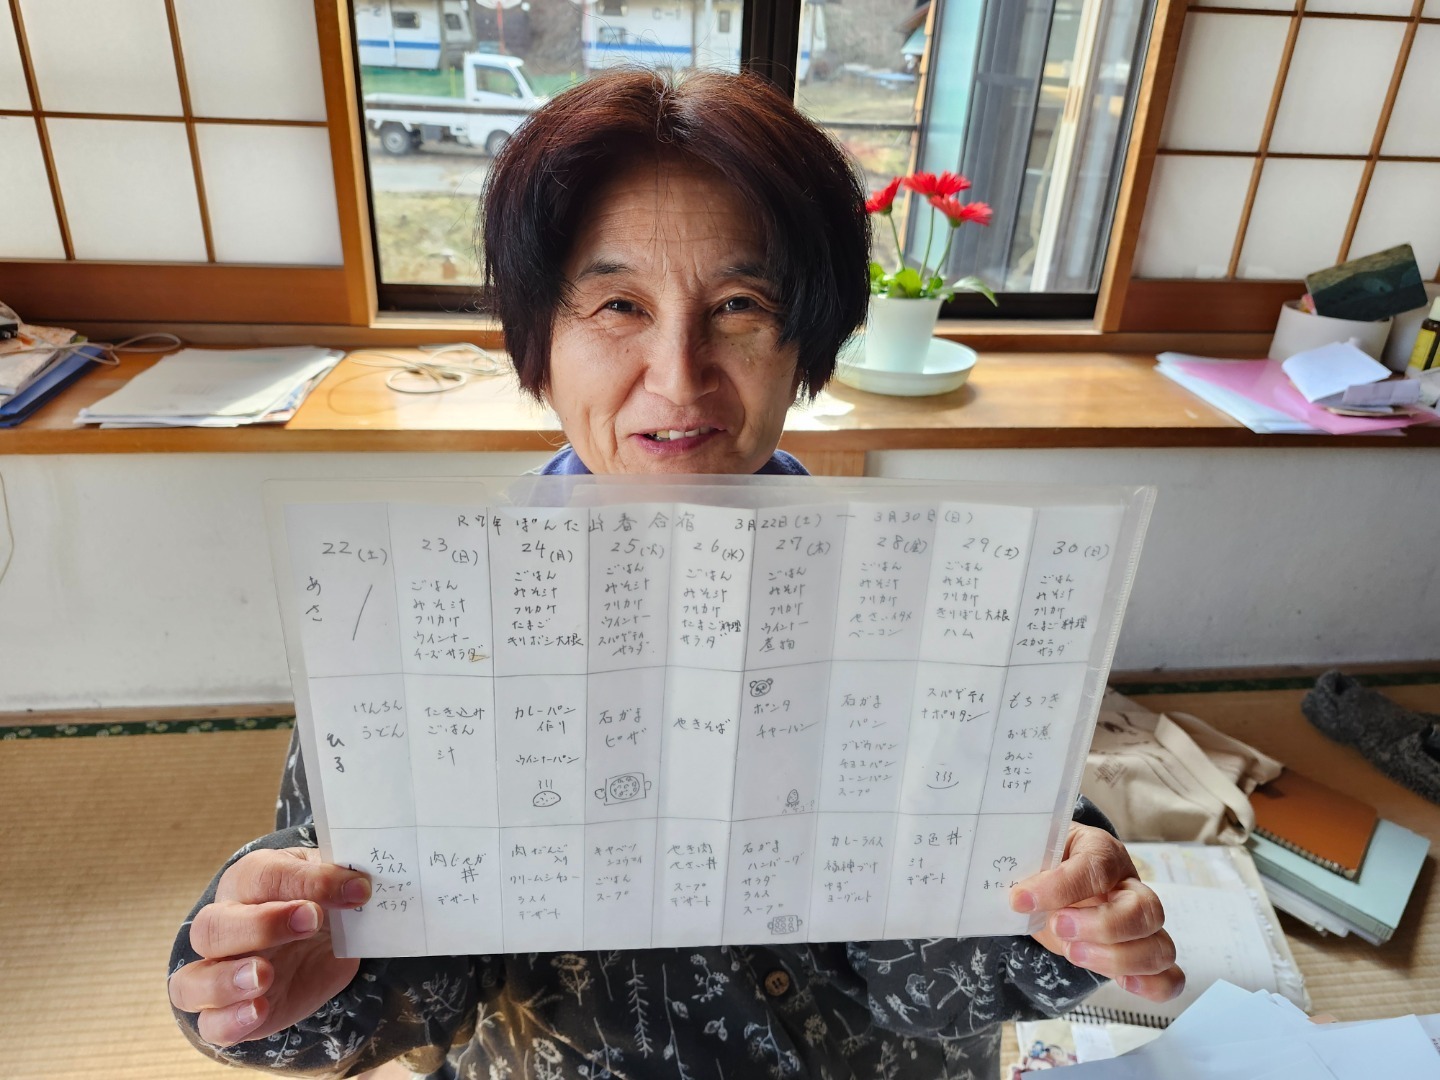 R7年 ぽんた山春合宿 3月22日(土) ー 3月30日(日)
22(土) 23(日) 24(月) 25(火) 26(水) 27(木) 28(金) 29(土) 30(日)
あさ
ごはん
みそ汁
フリカケ
ウインナー
チーズサラダ
ごはん
みそ汁
フリカケ
たまご
キリボシ大根
ごはん
みそ汁
フリカケ
ウインナー
スパゲティ
サラダ
ごはん
みそ汁
フリカケ
たまご料理
サラダ
ごはん
みそ汁
フリカケ
ウインナー
煮物
ごはん
みそ汁
フリカケ
やさいイタメ
ベーコン
ごはん
みそ汁
フリカケ
きりぼし大根
ハム
ごはん
みそ汁
フリカケ
たまご料理
マカロニ
サラダ
ひる
けんちん
うどん
たき込み
ごはん
汁
カレーパン
作り
ウインナーパン
石がま
ピザ
やきそば
ポンタ
チャーハン
石がま
パン
ブドウパン
チョコパン
コーンパン
スープ
スパゲティ
ナポリタン
もちつき
おぞう煮
あんこ
きなこ
しょうゆ
オム
ライス
スープ
サラダ
肉じゃが
丼
デザート
肉だんご
入り
クリームシチュー
ライス
デザート
キャベツ
ごはん
スープ
やき肉
やさい丼
スープ
デザート
石がま
ハンバーグ
サラダ
ライス
スープ
カレーライス
福神づけ
ゆず
ヨーグルト
3色丼
汁
デザート
またね